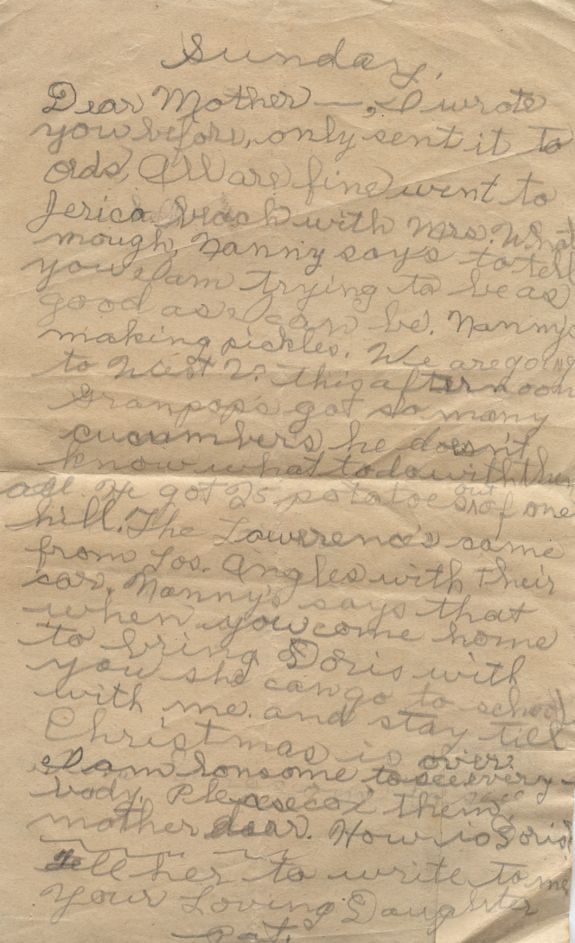 Sunday,
Dear Mother —, I wrote
you before, only sent it to
ords, All are fine went to
Jerico beach with Mrs. What
mough, Nanny say's to tell
you I am trying to be as
good as I can be. Nanny's
making pickles. We are going
to West V. this afternoon
Granpop's got so many
cucumbers, he doesn't
know what to do with them
all. He got 25 potatoes out of one
hill. The Lawrence's came
from Los. Angles with their
car. Nanny's says that
when you come home
to bring Doris with
you she can go to school
with me. and stay till
Christmas is over.
I am lonsome to see every-
body. Please them,
mother dear. How is Doris
tell her to write to me
Your Loving Daughter
Pat.